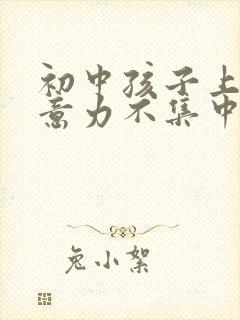 初中孩子上
意力不集中
兔小絮